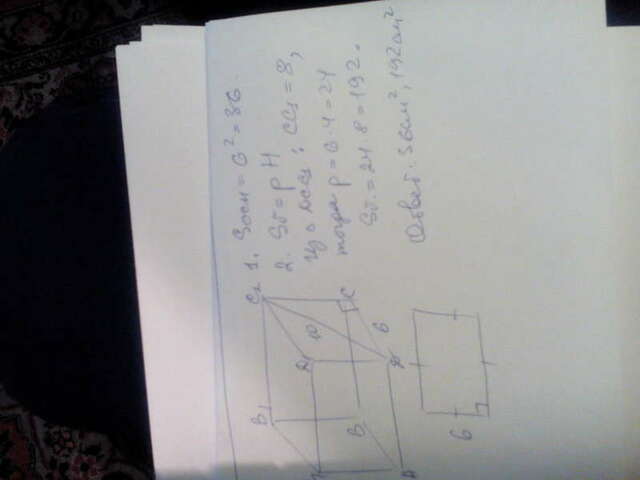 1. Sосн = 6² = 36.
2. Sб = P H
Из △ DCC₁ : CC₁ = 8,
тогда P = 6 · 4 = 24
Sб. = 24 · 8 = 192.
Ответ: 36 см², 192 см²
B₁
C₁
D₁
10
B
C
6
A
D
6